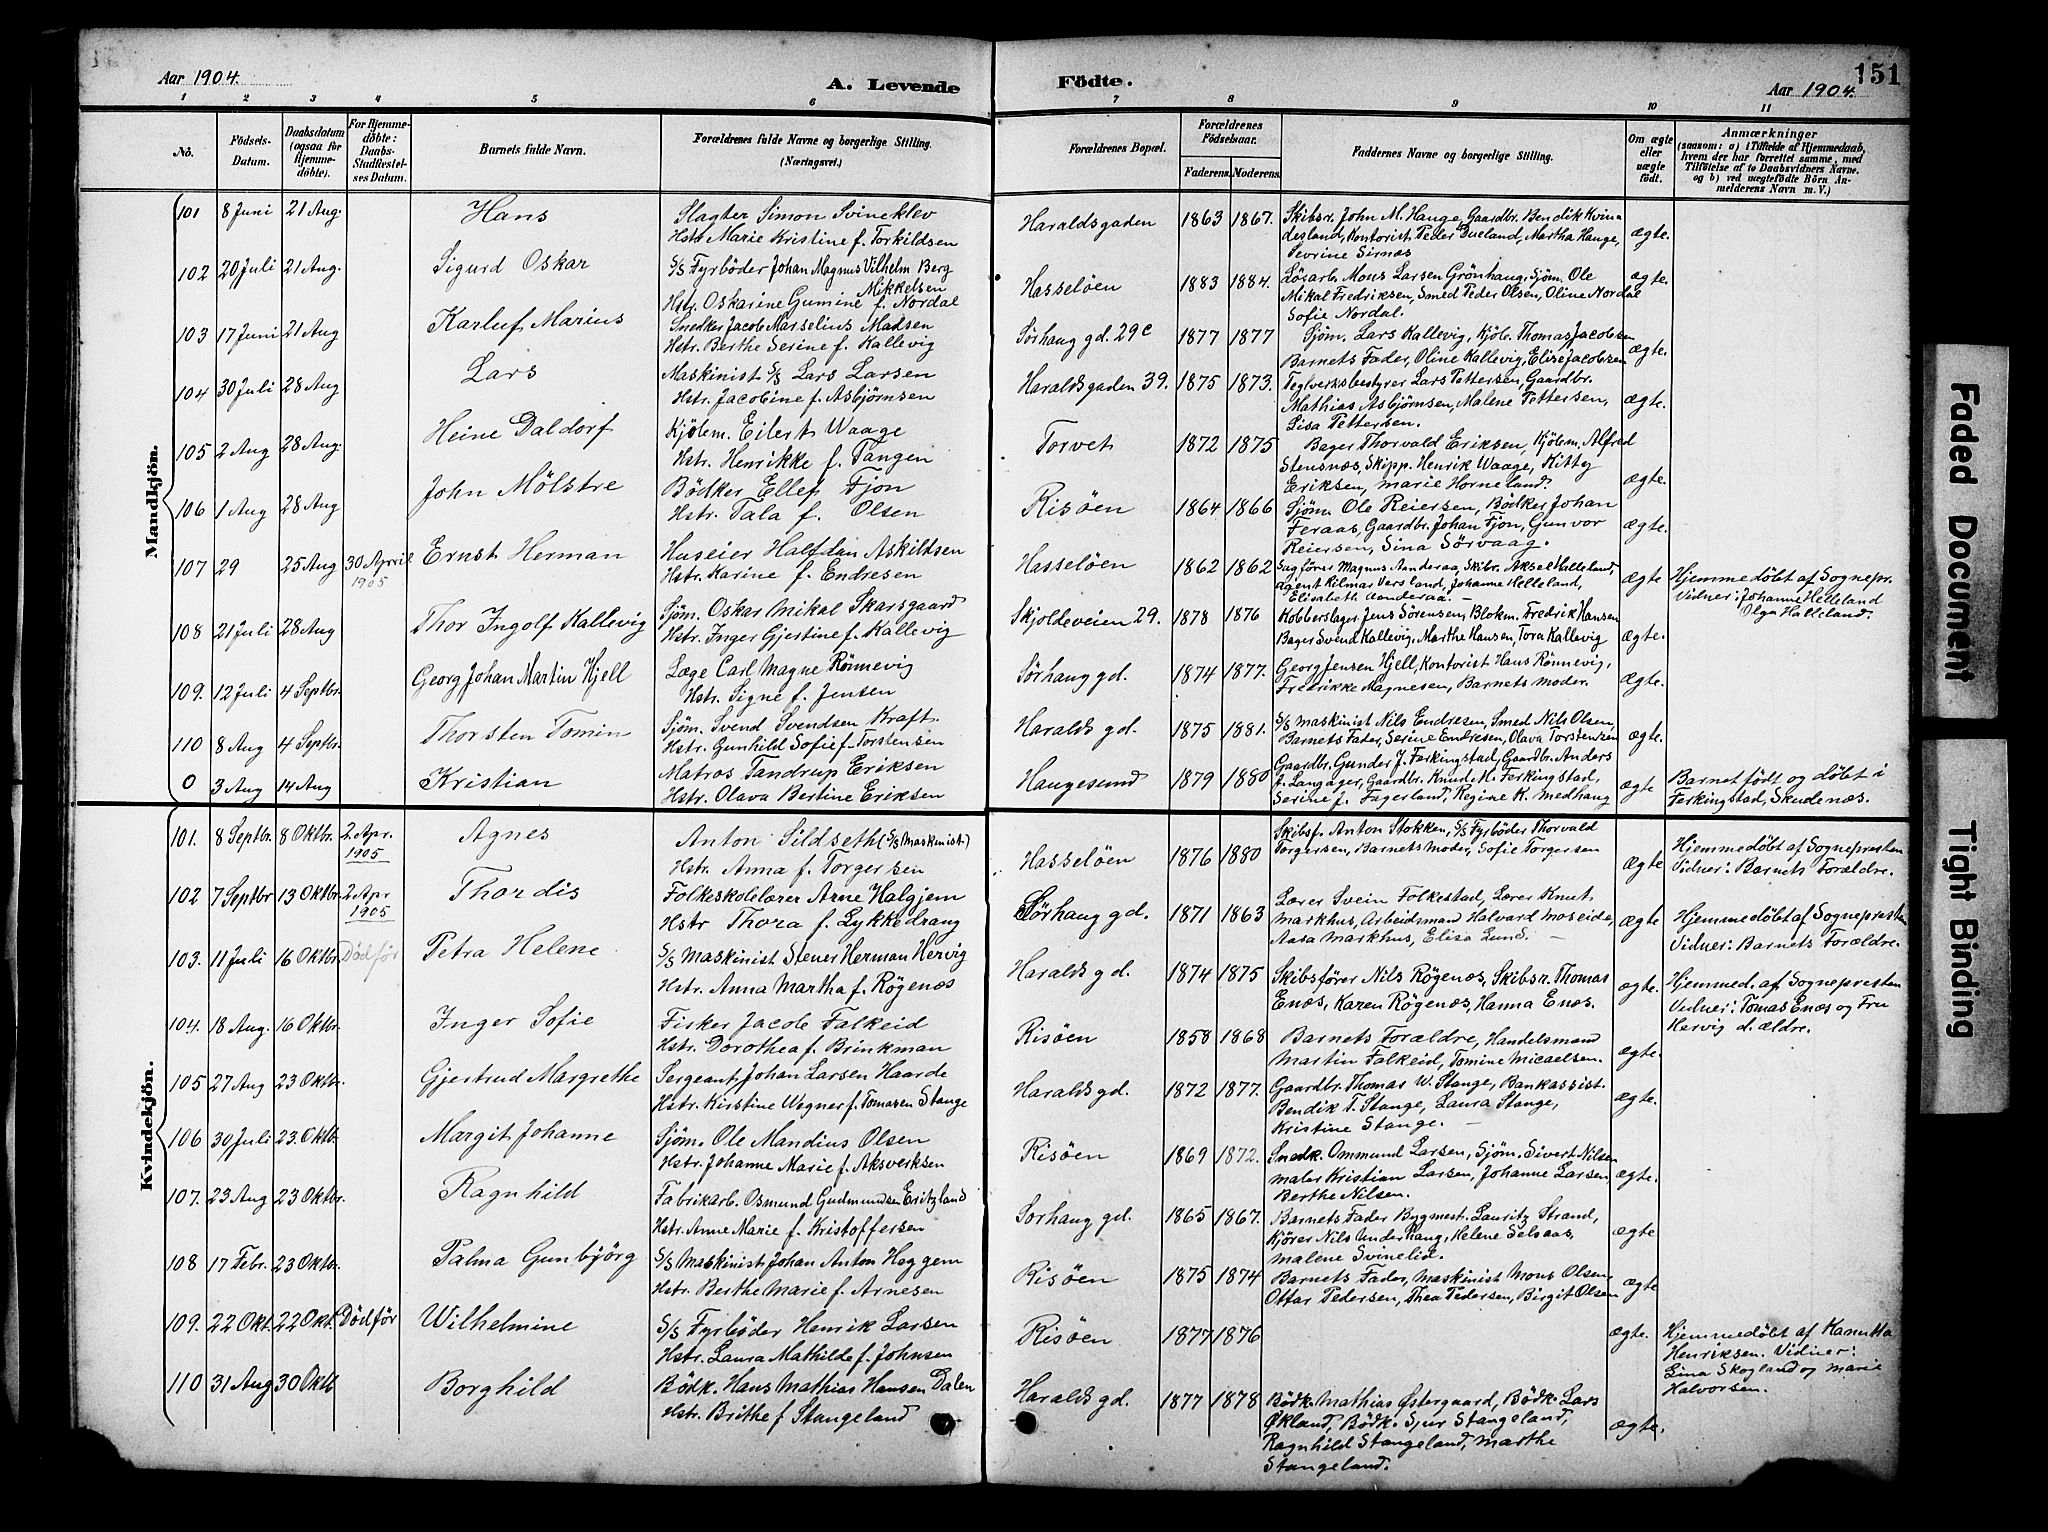 Aar 1904.
A. Levende
Födte.
151
Aar 1904.
1 2 3 4 5 6 7 8 9 10 11
No.
Födsels-Datum.
Daabsdatum (ogsaa for Hjemme-döbte).
For Hjemme-döbte: Daabs-Stadfæstel-ses Datum.
Barnets fulde Navn.
Forældrenes fulde Navne og borgerlige Stilling. (Næringsvei.)
Forældrenes Bopæl.
Forældrenes Födselsaar.
Faderens. Moderens.
Faddernes Navne og borgerlige Stilling.
Om ægte eller uægte födt.
Anmærkninger
(saasom: a) i Tilfælde af Hjemmedaab, hvem der har forrettet samme, med Tilföielse af to Daabsvidners Navne. og b) ved uægtefödte Börn An-melderens Navn m. V.)
Mandkjön.
101 8 Juni 21 Aug. Hans Slagter Simon Svineklev
Hstr Marie Kristine f. Torkildsen
Haraldsgaden 1863 1867. Skibsr. John M. Hauge, Gaardbr. Bendik Kvin-
desland, Kontorist Peder Dueland, Martha Hauge,
Sevrine Sirnæs ægte.
102 20 Juli 21 Aug. Sigurd Oskar S/S Fyrbøder Johan Magnus Vilhelm Berg
Mikkelsen
Hstr. Oskarine Gumine f. Nordal
Hasseløen 1883 1884. Løsarb. Mons Larsen Grönhaug, Sjøm. Ole
Mikal Fredriksen, Smed Peder Olsen, Oline Nordal
Sofie Nordal. ægte.
103 17 Juni 21 Aug Karluf Marius Snedker Jacob Marselius Madsen
Hstr. Berthe Serine f. Kallevig
Sørhaug gd. 29c 1877 1877 Sjøm. Lars Kallevig, Kjöb. Thomas Jacobsen
Barnets Fader, Oline Kallevig, Elise Jacobsen ægte.
104 30 Juli 28 Aug Lars Maskinist S/S Lars Larsen
Hstr. Jacobine f. Asbjørnsen
Haraldsgaden 39. 1875 1873. Teglverksbestyrer Lars Pettersen, Gaardbr.
Mathias Asbjørnsen, Malene Pettersen,
Lisa Pettersen. ægte.
105 2 Aug 28 Aug. Heine Daldorf Kjölem. Eilert Waage
Hstr. Henrikke f. Tangen
Torvet 1872 1875 Bager Thorvald Eriksen, Kjølem. Alfred
Stensnæs, Skipp. Henrik Waage, Kitty
Eriksen, Marie Horneland. ægte.
106 1 Aug 28 Aug John Mölstre Bödker Ellef Fjon
Hstr. Tala f. Olsen
Risöen 1864 1866 Sjøm. Ole Reiersen, Bödker Johan
Feraas, Gaardbr. Johan Fjon, Gunvor
Reiersen, Sina Sörvaag. ægte.
107 29 25 Aug 30 April
1905 Ernst Herman Huseier Halfdan Askildsen
Hstr. Karine f. Endresen
Hasseløen 1862 1862 Sagfører Magnus Aanderaa, Skibr. Aksel Halleland,
Agent Kilmar Versland, Johanne Helleland,
Elisabeth Aanderaa. ægte Hjemmedöbt af Sognepr.
Vidner: Johanne Helleland
Olga Halleland.
108 21 Juli 28 Aug Thor Ingolf Kallevig Sjöm. Oskar Mikal Skarsgaard
Hstr. Inger Gjertine f. Kallevig
Skjoldeveien 29. 1878 1876 Kobberslager Jens Sørensen, Blokm. Fredrik Hansen
Bager Svend Kallevig, Marthe Hansen, Tora Kallevig ægte.
109. 12 Juli 4 Septbr. Georg Johan Martin Hjell Læge Carl Magne Rönnevig
Hstr. Signe f. Jensen
Sørhaug gd. 1874 1877. Georg Jensen Hjell, Kontorist Hans Rønnevig,
Fredrikke Magnesen, Barnets Moder. ægte.
110 8 Aug 4 Septbr. Thorsten Tomin Sjöm. Svend Svendsen Kraft.
Hstr. Gunhild Sofie f. Torstensen
Haralds gd. 1875 1881. S/S Maskinist Nils Endresen, Smed Nils Olsen,
Barnets Fader, Serine Endresen, Olava Torstensen ægte.
0 3 Aug 14 Aug Kristian Matros Tandrup Eriksen
Hstr. Olava Bertine Eriksen
Haugesund 1879 1880 Gaardbr. Gunder J. Ferkingstad, Gaardbr. Anders
A. Langåger, Gaardbr. Knud M. Ferkingstad,
Serine J. Fagerland, Regine K. Medhaug ægte Barnet födt og döbt i
Ferkingstad, Skudenæs.
Kvindekjön.
101. 8 Septbr. 8 Oktbr. 2 Apr.
1905 Agnes Anton Sildseth (S/S Maskinist.)
Hstr. Anna f. Torgersen
Hasseløen 1876 1880 Skibsf. Anton Stokken, S/S Fyrbøder Thorvald
Torgersen, Barnets Moder, Sofie Torgersen ægte Hjemmedöbt af Sognepresten
Vidner: Barnets Forældre.
102 7 Septbr 13 Oktbr. 2 Apr
1905 Thordis Folkeskolelærer Arne Halgjem
Hstr Thora f. Lykkedrang
Sørhaug gd. 1871 1863 Lærer Svein Folkestad, Lærer Knut
Markhus, Arbeidsmand Halvard Moseide,
Aasa Markhus, Elisa Lund. ægte Hjemmedöbt af Sognepresten
Vidner: Barnets Forældre.
103. 11 Juli 16 Oktbr. Död før Petra Helene S/S Maskinist Stener Herman Hervig
Hstr. Anna Martha f. Rögenæs
Haralds gd. 1874 1875 Skibsförer Nils Rögenæs, Skibsr. Thomas
Enæs, Karen Rögenæs, Hanna Enæs. ægte. Hjemmed. af Sognepresten
Vidner: Tomas Enæs og Fru
Hervig d. ældre.
104. 18 Aug. 16 Oktbr. Inger Sofie Fisker Jacob Falkeid
Hstr. Dorothea f. Brinkman
Risöen 1858 1868 Barnets Forældre, Handelsmand
Martin Falkeid, Tomine Micaelsen. ægte.
105 27 Aug 23 Oktbr. Gjertrud Margrethe Sergeant Johan Larsen Haarde
Hstr. Kirstine Wegner f. Tomasen Stange
Haralds gd. 1872 1877. Gaardbr. Thomas W. Stange, Bankassist.
Bendik T. Stange, Laura Stange,
Kristine Stange. ægte.
106 30 Juli 23. Oktb. Margit Johanne Sjöm. Ole Mandius Olsen
Hstr. Johanne Marie f. Aksverksen
Risöen 1869 1872. Snedk. Ommund Larsen, Sjöm. Sivert Nilsen
maler Kristian Larsen, Johanne Larsen
Berthe Nilsen. ægte.
107. 23 Aug 23 Oktbr. Ragnhild Fabrikarb. Osmund Gudmundsen Eritzland
Hstr. Anne Marie f. Kristoffersen
Sørhaug gd. 1865 1867. Barnets Fader Bygmest. Lauritz Strand,
Kjører Nils Underhaug, Helene Selsaas,
Malene Svinelid. ægte
108 17 Febr. 23 Oktbr. Palma Gunbjörg S/S Maskinist Johan Anton Heggem
Hstr. Berthe Marie f. Arnesen
Risöen 1875 1874 Barnets Fader, Maskinist Mons Olsen,
Ottar Pedersen, Thea Pedersen, Birgit Olsen ægte
109. 22 Okt. 22 Okt. Död før Wilhelmine S/S Fyrbøder Henrik Larsen
Hstr. Laura Mathilde f. Johnsen
Risöen 1877 1876 ægte. Hjemmedöbt af Kanutta
Henriksen. Vidner:
Lina Skogland og Marie
Halvorsen.
110 31 Aug 30 Oktb Borghild Bödk. Hans Mathias Hansen Dalen
Hstr. Brithe f Stangeland
Haralds gd. 1877 1878 Bödk. Mathias Østergaard, Bödk. Lars
Økland, Bödk. Sjur Stangeland,
Ragnhild Stangeland, Marthe
Stangeland. ægte.
Faded Document
Tight Binding